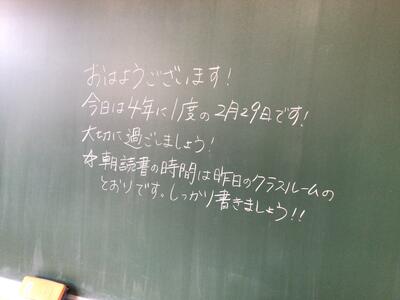 おはようございます!
今日は4年に1度の2月29日です!
大切に過ごしましょう!
☆朝読書の時間は昨日のクラスルームの
とおりです。しっかり書きましょう!!